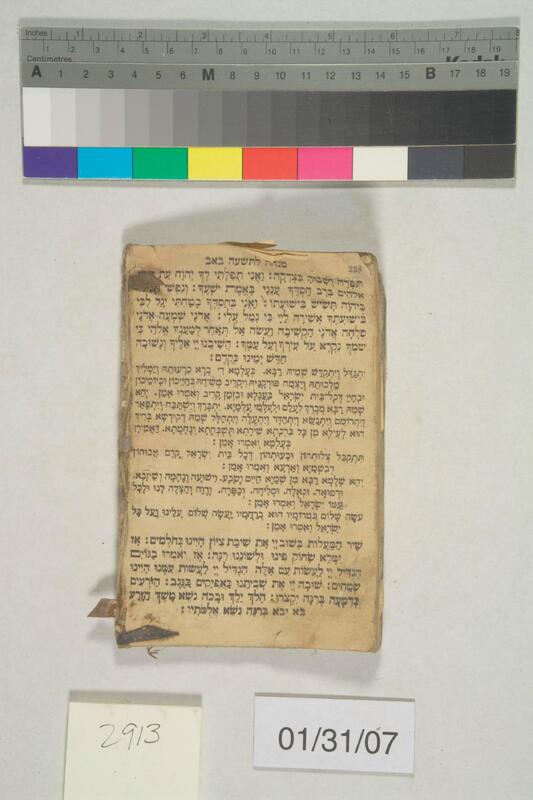 Inches 1 2 3 4 5 6 7 8
Centimetres 1 2 3 4 5 6 7 8 9 10 11 12 13 14 15 16 17 18 19
Kodak
A 1 2 3 4 5 6 M 8 9 10 11 12 13 14 15 B 17 18 19
מנחה לתשעה באב
תִּפָּדֶה וְשָׁבֶיהָ בִּצְדָקָה: וַאֲנִי תְפִלָּתִי לְךָ יְהוָֹה עֵת
אֱלֹהִים בְּרָב חַסְדֶּךָ עֲנֵנִי בֶּאֱמֶת יִשְׁעֶךָ: וְנַפְשִׁי
בַּיהוָֹה תָּשִׂישׂ בִּישׁוּעָתוֹ: וַאֲנִי בְּחַסְדְּךָ בָטַחְתִּי יָגֵל לִבִּי
בִּישׁוּעָתֶךָ אָשִׁירָה לַיְיָ כִּי גָמַל עָלָי: אֲדֹנָי שְׁמָעָה אֲדֹנָי
סְלָחָה אֲדֹנָי הַקְשִׁיבָה וַעֲשֵׂה אַל תְּאַחַר לְמַעַנְךָ אֱלֹהַי כִּי
שִׁמְךָ נִקְרָא עַל עִירְךָ וְעַל עַמֶּךָ: הֲשִׁיבֵנוּ יְיָ אֵלֶיךָ וְנָשׁוּבָה
חַדֵּשׁ יָמֵינוּ כְּקֶדֶם:
יִתְגַּדַּל וְיִתְקַדַּשׁ שְׁמֵיהּ רַבָּא. בְּעָלְמָא דִּי בְרָא כִרְעוּתֵהּ וְיַמְלִיךְ
מַלְכוּתֵהּ וְיַצְמַח פּוּרְקָנֵיהּ וִיקָרֵיב מְשִׁיחֵהּ בְּחַיֵּיכוֹן וּבְיוֹמֵיכוֹן
וּבְחַיֵּי דְכָל־בֵּית יִשְׂרָאֵל בַּעֲגָלָא וּבִזְמַן קָרִיב וְאִמְרוּ אָמֵן. יְהֵא
שְׁמֵהּ רַבָּא מְבָרַךְ לְעָלַם וּלְעָלְמֵי עָלְמַיָּא. יִתְבָּרַךְ וְיִשְׁתַּבַּח וְיִתְפָּאַר
וְיִתְרוֹמַם וְיִתְנַשֵּׂא וְיִתְהַדָּר וְיִתְעַלֶּה וְיִתְהַלָּל שְׁמֵהּ דְּקוּדְשָׁא בְּרִיךְ
הוּא לְעֵילָּא מִן כָּל בִּרְכָתָא שִׁירָתָא תִּשְׁבְּחָתָא וְנֶחֱמָתָא. דַּאֲמִירָן
בְּעָלְמָא וְאִמְרוּ אָמֵן:
תִּתְקַבֵּל צְלוֹתְהוֹן וּבָעוּתְהוֹן דְּכָל בֵּית יִשְׂרָאֵל קֳדָם אֲבוּהוֹן
דְּבִשְׁמַיָּא וְאַרְעָא וְאִמְרוּ אָמֵן:
יְהֵא שְׁלָמָא רַבָּא מִן שְׁמַיָּא חַיִּים וְשָׂבָע. וִישׁוּעָה וְנֶחָמָה וְשֵׁיזָבָא.
וּרְפוּאָה. וּגְאוּלָה. וּסְלִיחָה. וְכַפָּרָה. וְרֶוַח וְהַצָּלָה לָנוּ וּלְכָל
עַמּוֹ יִשְׂרָאֵל וְאִמְרוּ אָמֵן:
עֹשֶׂה שָׁלוֹם בִּמְרוֹמָיו הוּא בְרַחֲמָיו יַעֲשֶׂה שָׁלוֹם עָלֵינוּ וְעַל כָּל
יִשְׂרָאֵל וְאִמְרוּ אָמֵן:
שִׁיר הַמַּעֲלוֹת בְּשׁוּב יְיָ אֶת שִׁיבַת צִיּוֹן הָיִינוּ כְּחֹלְמִים: אָז
יִמָּלֵא שְׂחוֹק פִּינוּ וּלְשׁוֹנֵנוּ רִנָּה: אָז יֹאמְרוּ בַגּוֹיִם
הִגְדִּיל יְיָ לַעֲשׂוֹת עִם אֵלֶּה הִגְדִּיל יְיָ לַעֲשׂוֹת עִמָּנוּ הָיִינוּ
שְׂמֵחִים: שׁוּבָה יְיָ אֶת שְׁבִיתֵנוּ כַּאֲפִיקִים בַּנֶּגֶב: הַזֹּרְעִים
בְּדִמְעָה בְּרִנָּה יִקְצֹרוּ: הָלֹךְ יֵלֵךְ וּבָכֹה נֹשֵׂא מֶשֶׁךְ הַזָּרַע
בֹּא יָבֹא בְרִנָּה נֹשֵׂא אֲלֻמֹּתָיו:
2913
01/31/07